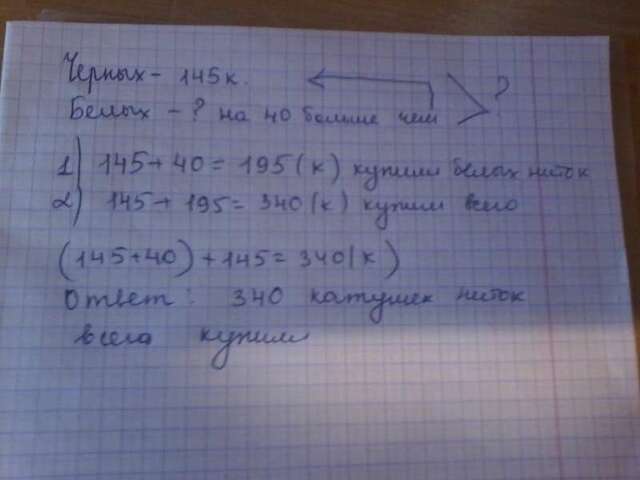 Черных - 145 к.
Белых - ? на 40 больше чем ?
1) 145 + 40 = 195 (к) купили белых ниток
2) 145 + 195 = 340 (к) купили всего
(145+40) + 145 = 340 (к)
Ответ: 340 катушек ниток
всега купили